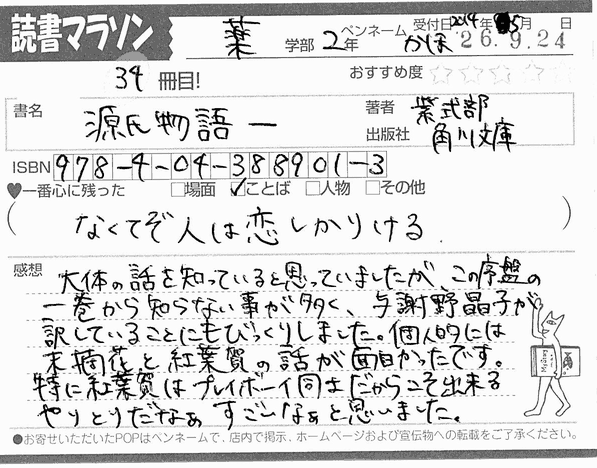 読書マラソン
薬 学部 2年 ペンネーム かほ 受付日 2014年 5月 日
26.9.24
34 冊目! おすすめ度 ☆☆☆☆☆
書名 源氏物語 一
著者 紫式部
出版社 角川文庫
ISBN 978-4-04-388901-3
♥一番心に残った □場面 ☑ことば □人物 □その他
(なくてぞ人は恋しかりける)
感想 大体の話を知っていると思っていましたが、この序盤の
一巻から知らない事が多く、与謝野晶子が
訳していることにもびっくりしました。個人的には
末摘花と紅葉賀の話が面白かったです。
特に紅葉賀はプレイボーイ同士だからこそ出来る
やりとりだなぁ すごいなぁと思いました。
●お寄せいただいたPOPはペンネームで、店内で掲示、ホームページおよび宣伝物への転載をご了承ください。